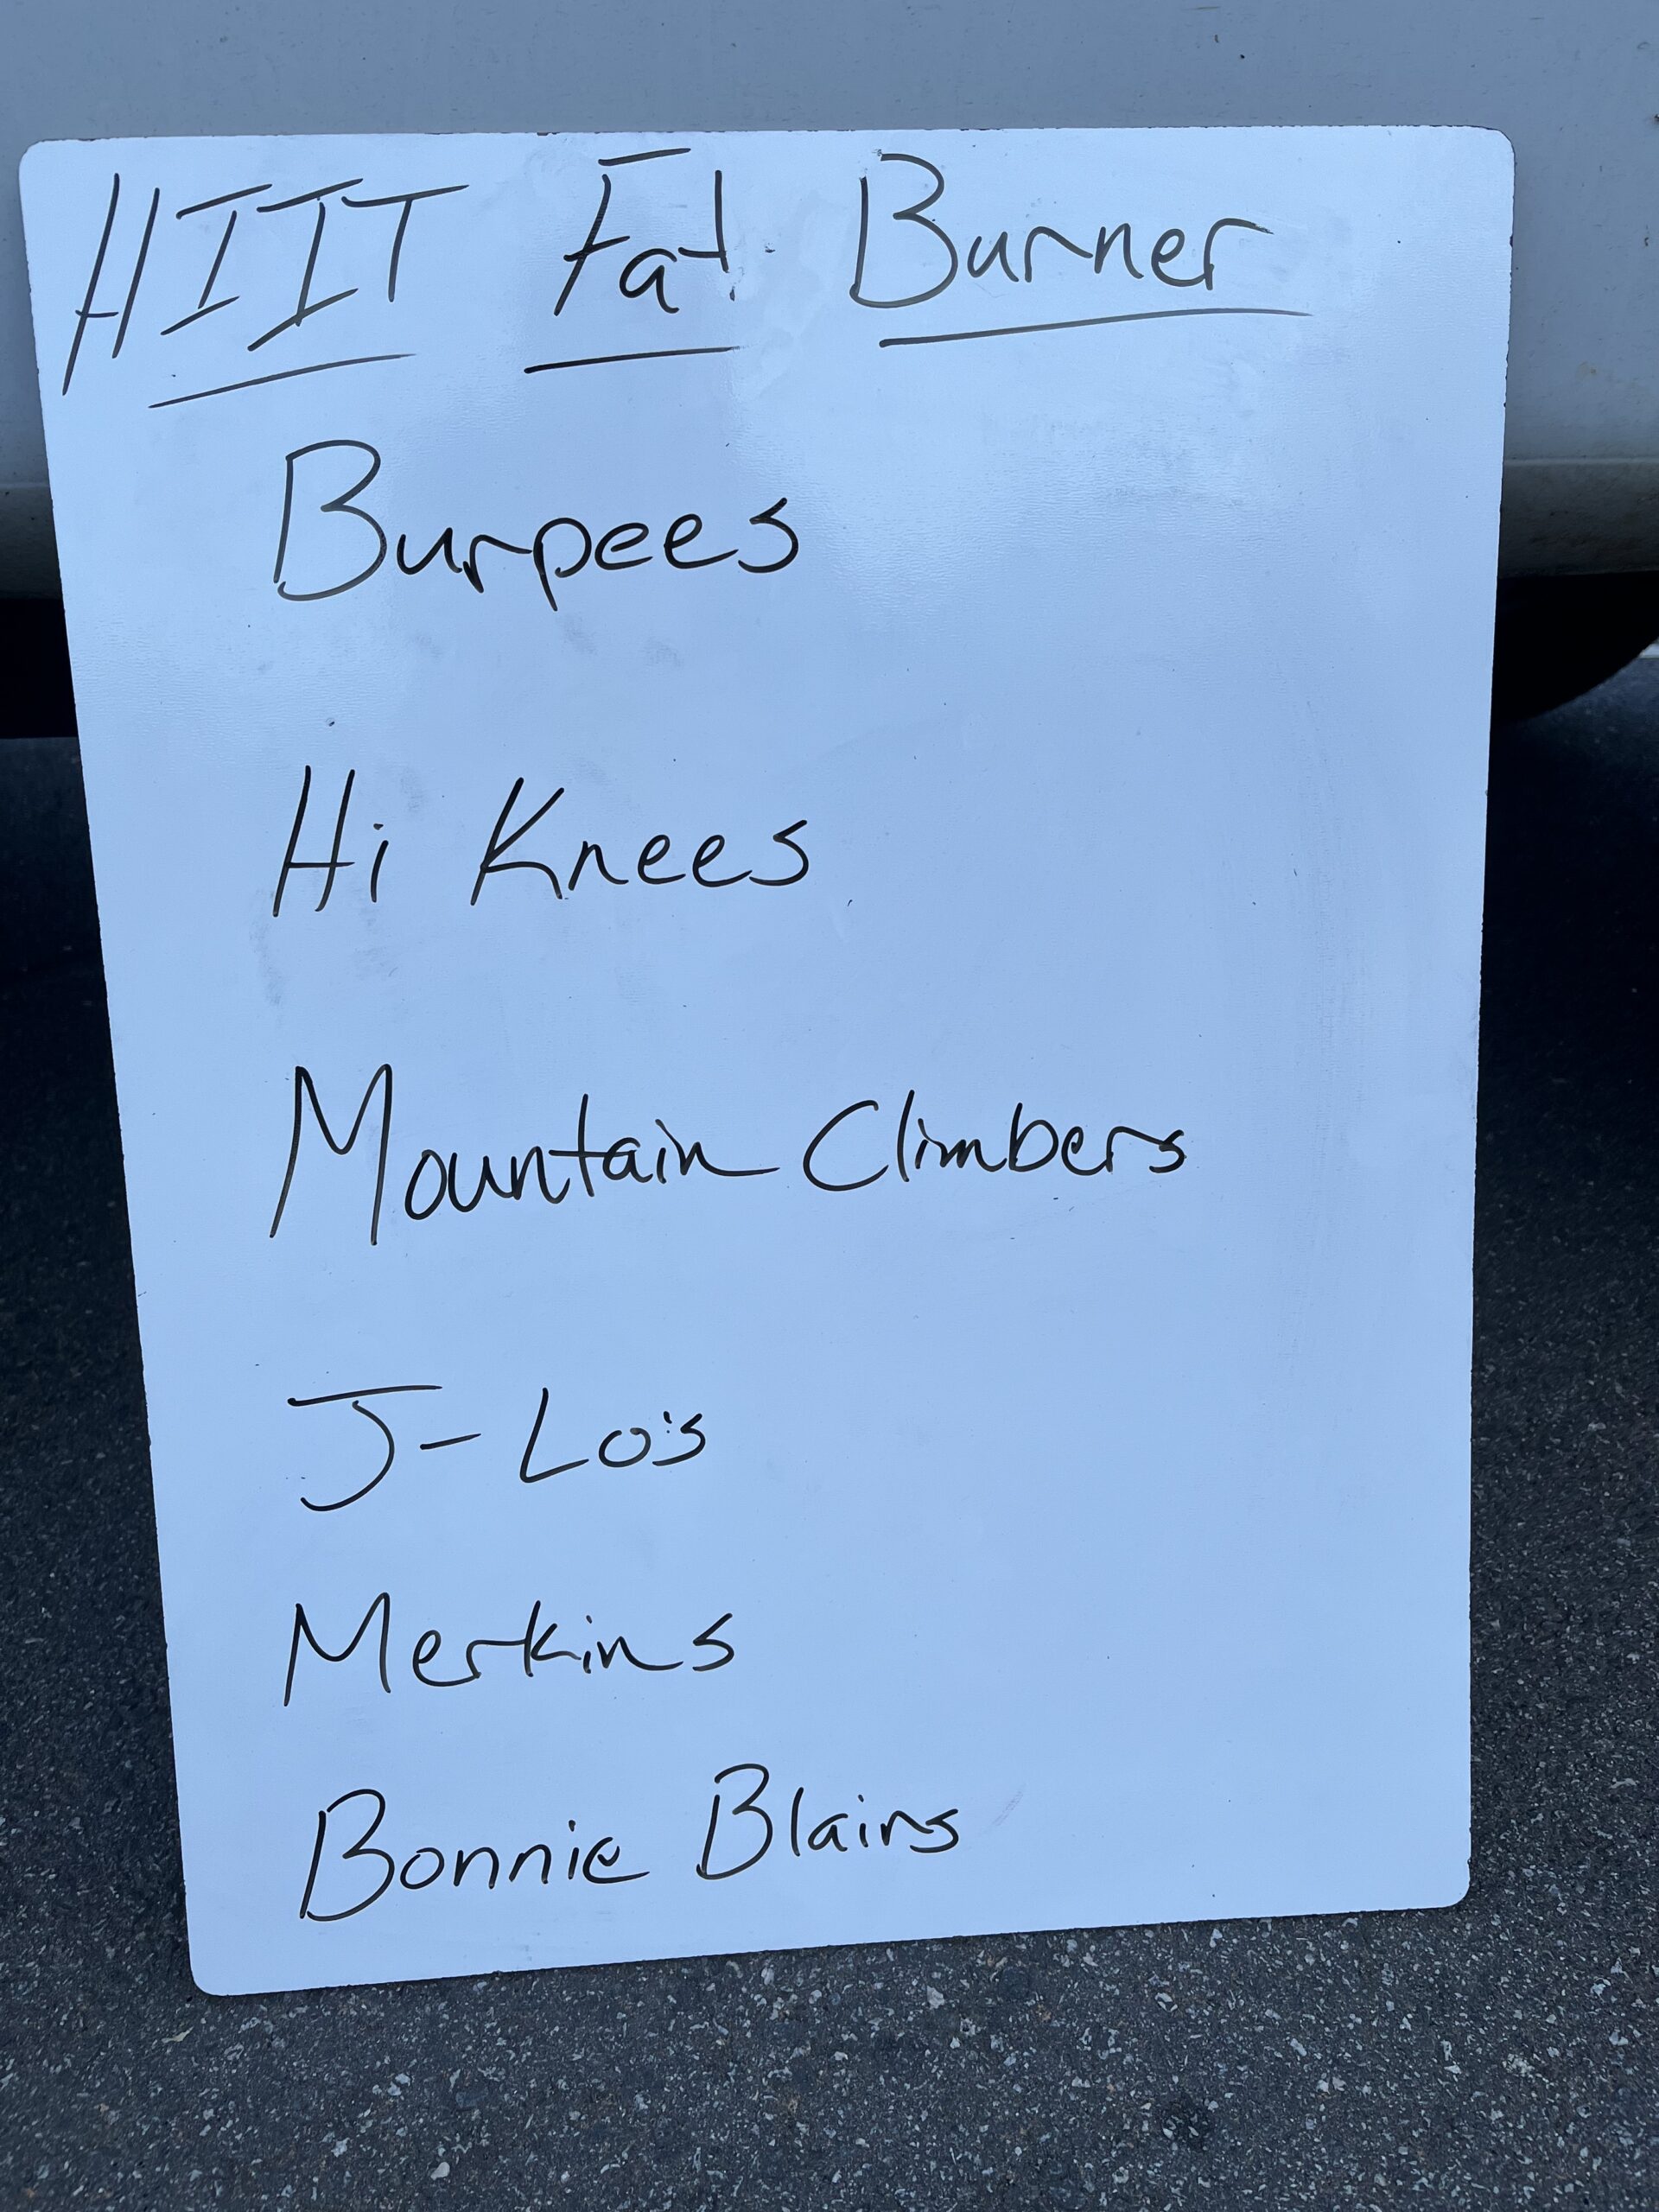 HIIT Fat Burner
Burpees
Hi Knees
Mountain Climbers
J-Lo's
Merkins
Bonnie Blairs